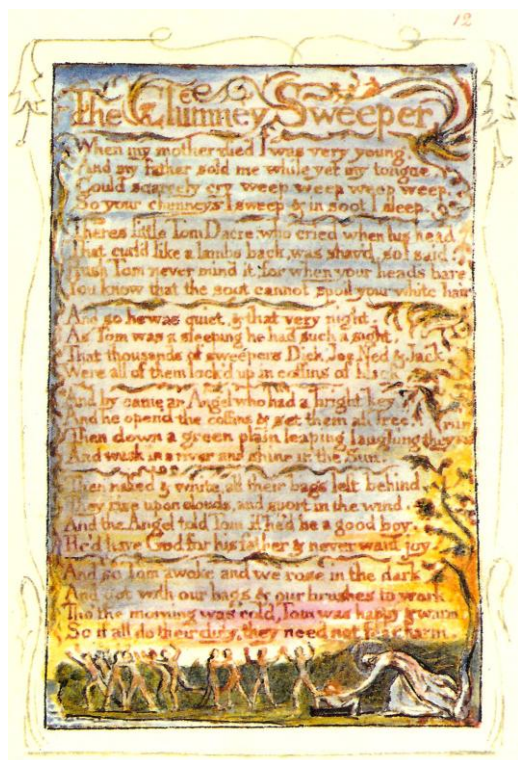 12
The Chimney Sweeper
When my mother died I was very young,
And my father sold me while yet my tongue,
Could scarcely cry weep weep weep weep,
So your chimneys I sweep & in soot I sleep.
Theres little Tom Dacre, who cried when his head
That curl'd like a lambs back, was shav'd, so I said,
Hush Tom never mind it, for when your head's bare,
You know that the soot cannot spoil your white hair
And so he was quiet, & that very night,
As Tom was a sleeping he had such a sight,
That thousands of sweepers Dick, Joe, Ned & Jack
Were all of them lock'd up in coffins of black
And by came an Angel who had a bright key
And he open'd the coffins & set them all free.
Then down a green plain leaping laughing they run
And wash in a river and shine in the Sun.
Then naked & white, all their bags left behind,
They rise upon clouds, and sport in the wind.
And the Angel told Tom, if he'd be a good boy,
He'd have God for his father & never want joy
And so Tom awoke and we rose in the dark
And got with our bags & our brushes to work
Tho' the morning was cold, Tom was happy & warm
So if all do their duty, they need not fear harm.